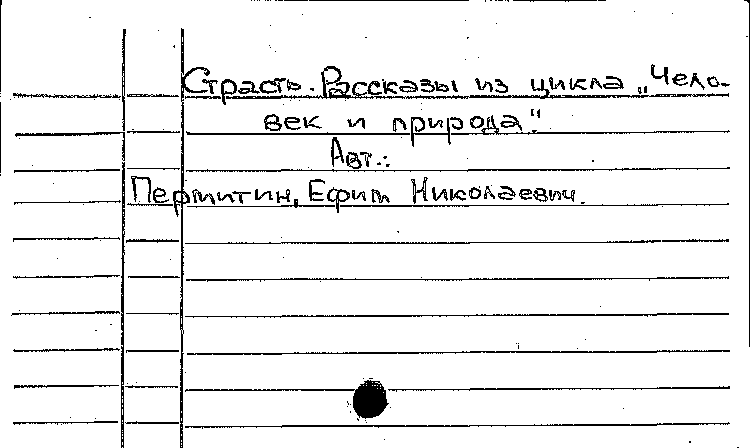 Страсть. Рассказы из цикла „Чело-
век и природа".
Авт.:
Пермитин, Ефим Николаевич.